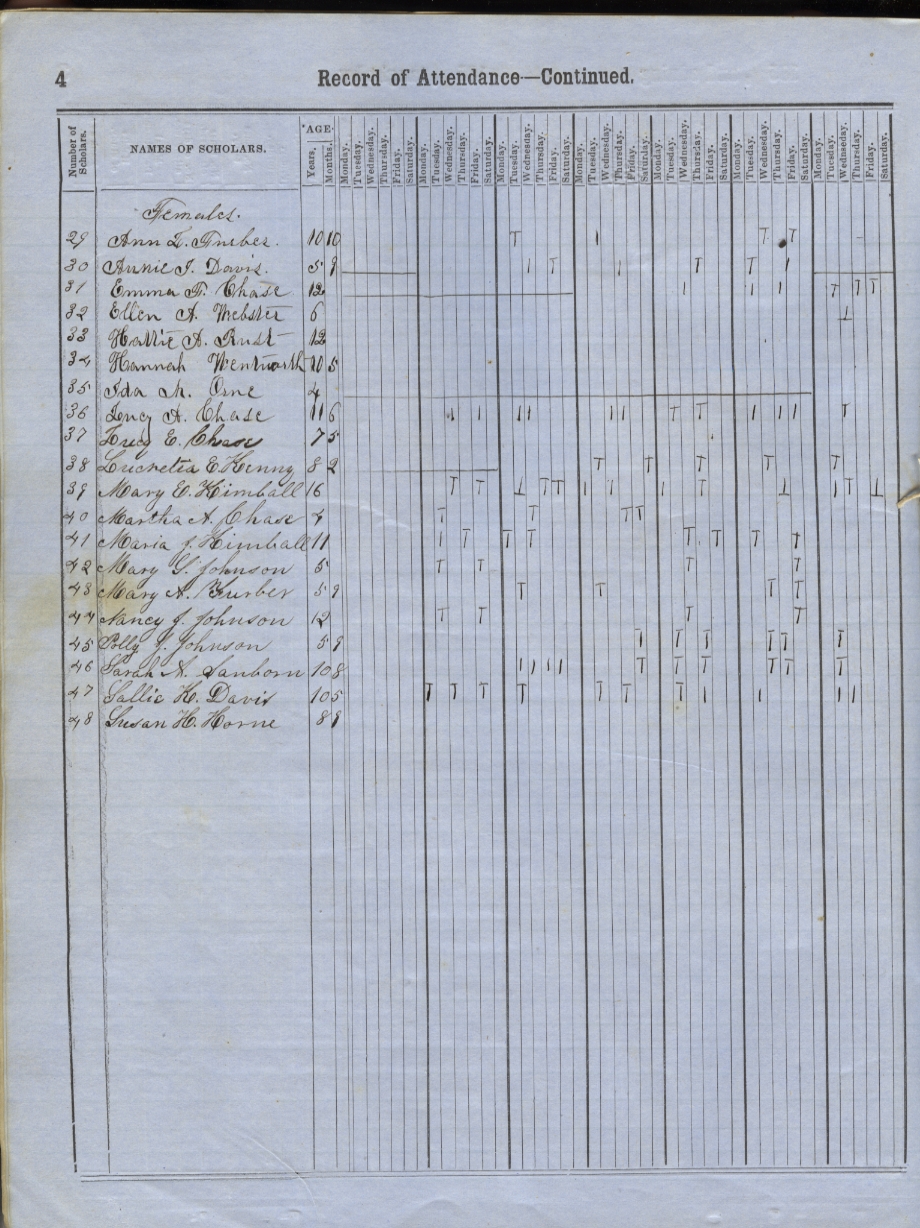 4 Record of Attendance—Continued.
Number of Scholars. NAMES OF SCHOLARS. AGE. Years, Months. Monday. Tuesday. Wednesday. Thursday. Friday. Saturday. Monday. Tuesday. Wednesday. Thursday. Friday. Saturday. Monday. Tuesday. Wednesday. Thursday. Friday. Saturday. Monday. Tuesday. Wednesday. Thursday. Friday. Saturday. Monday. Tuesday. Wednesday. Thursday. Friday. Saturday. Monday. Tuesday. Wednesday. Thursday. Friday. Saturday. Monday. Tuesday. Wednesday. Thursday. Friday. Saturday.
Females.
29 Ann L. Furber. 10 10
30 Annie J. Davis. 5 9
31 Emma F. Chase 12
32 Ellen A. Webster 6
33 Hattie A. Rust 12
34 Hannah Wentworth 10 5
35 Ida M. Orne 4
36 Lucy A. Chase 11 6
37 Lucy E. Chase 7 5
38 Lucretia E. Kenny 8 2
39 Mary E. Kimball 16
40 Martha A. Chase 4
41 Maria J. Kimball 11
42 Mary G. Johnson 5
43 Mary A. Furber 5 9
44 Nancy J. Johnson 12
45 Polly J. Johnson 5 9
46 Sarah A. Sanborn 10 8
47 Sallie K. Davis 10 5
48 Susan H. Horne 8 9